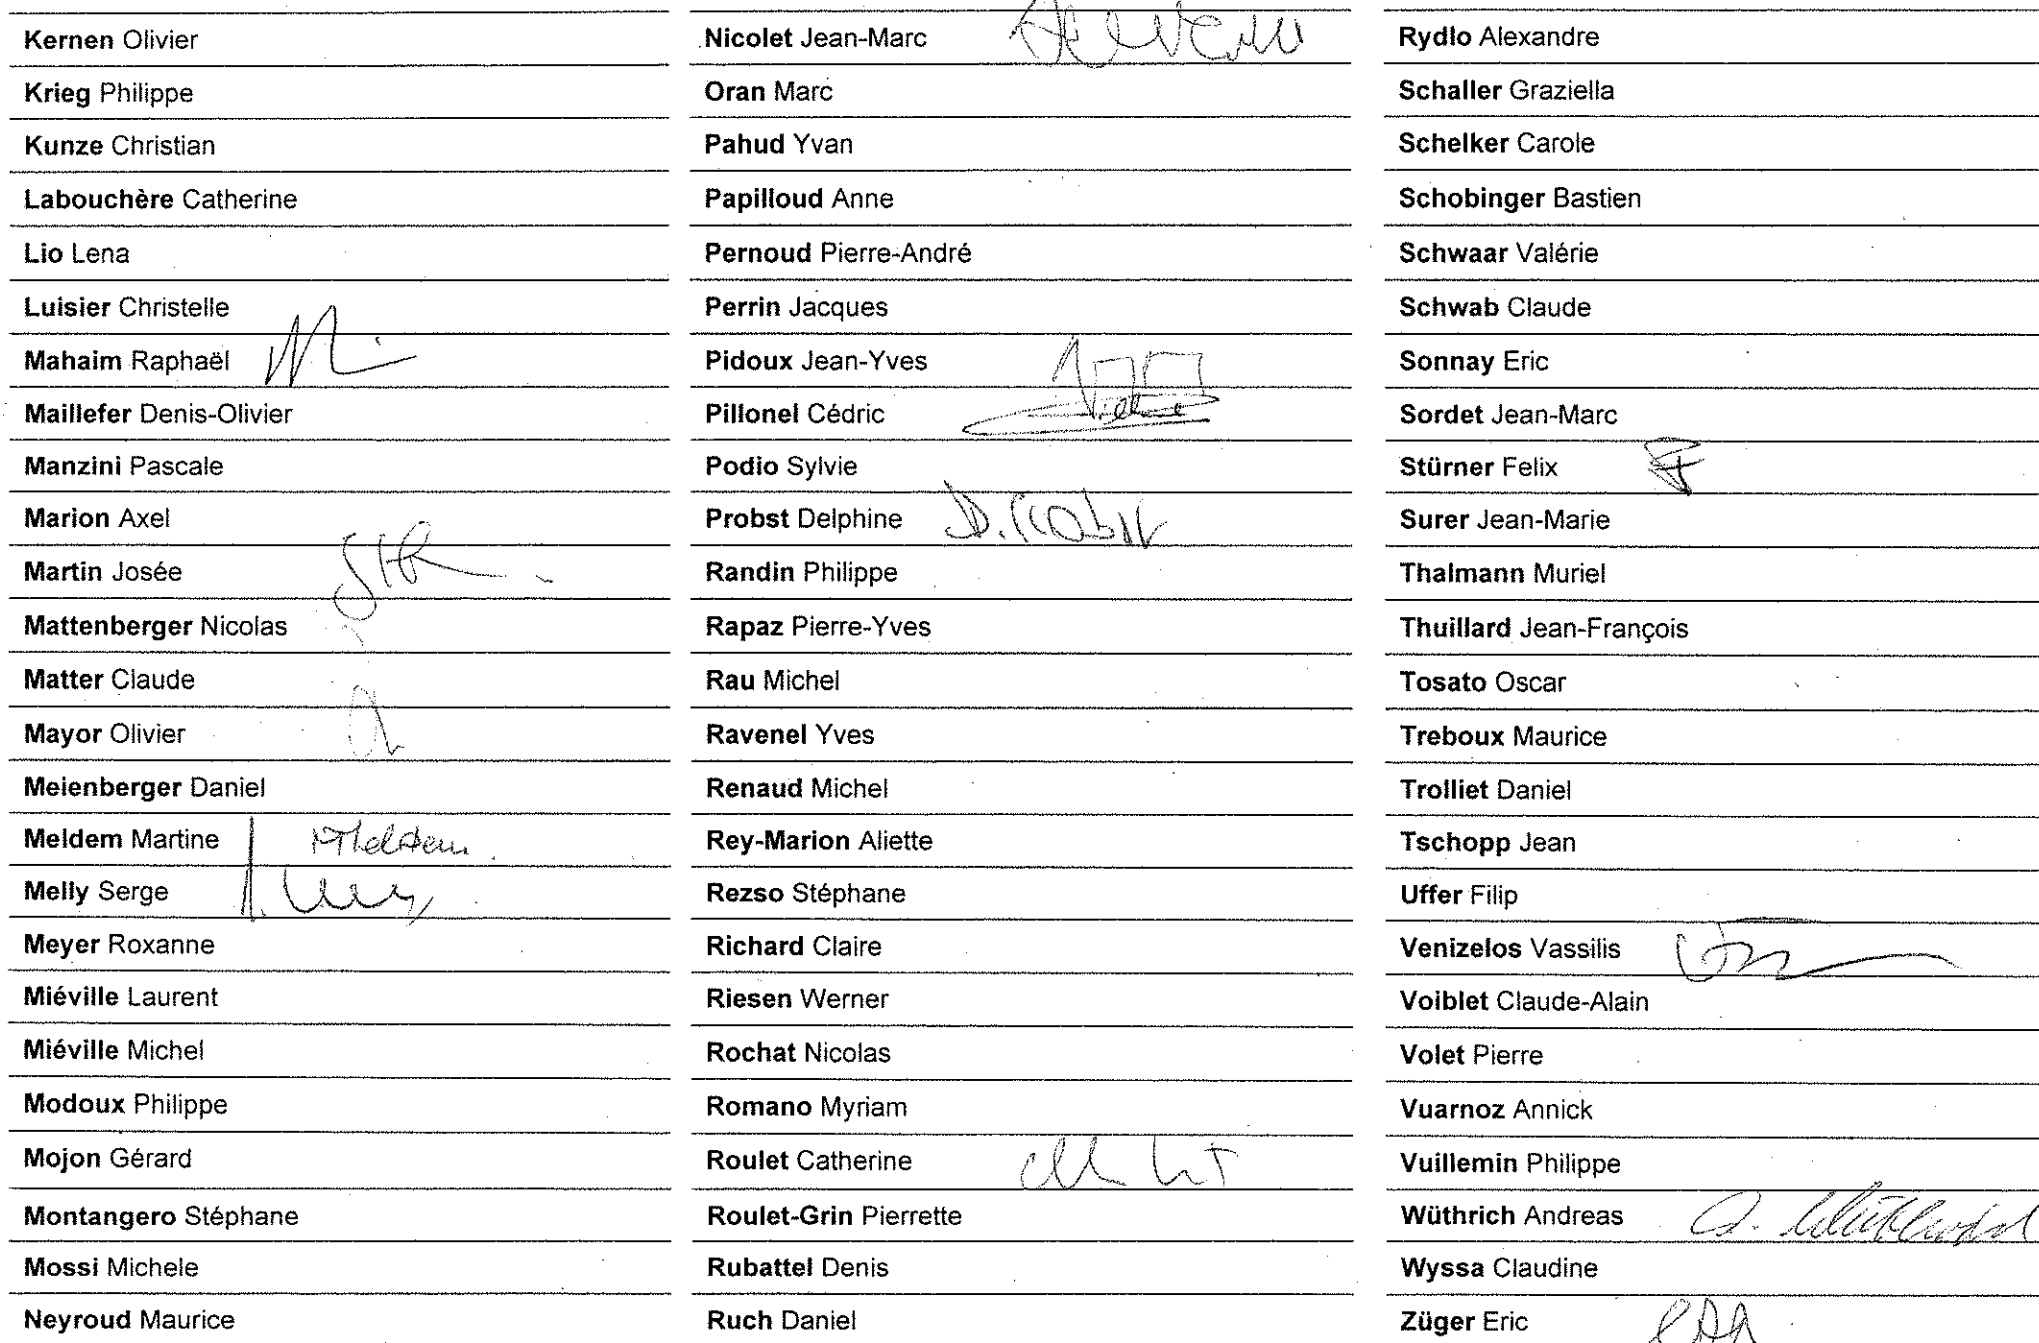 Kernen Olivier
Krieg Philippe
Kunze Christian
Labouchère Catherine
Lio Lena
Luisier Christelle
Mahaim Raphaël
Maillefer Denis-Olivier
Manzini Pascale
Marion Axel
Martin Josée
Mattenberger Nicolas
Matter Claude
Mayor Olivier
Meienberger Daniel
Meldem Martine Meldem
Melly Serge
Meyer Roxanne
Miéville Laurent
Miéville Michel
Modoux Philippe
Mojon Gérard
Montangero Stéphane
Mossi Michele
Neyroud Maurice
Nicolet Jean-Marc
Oran Marc
Pahud Yvan
Papilloud Anne
Pernoud Pierre-André
Perrin Jacques
Pidoux Jean-Yves
Pillonel Cédric
Podio Sylvie
Probst Delphine D. Probst
Randin Philippe
Rapaz Pierre-Yves
Rau Michel
Ravenel Yves
Renaud Michel
Rey-Marion Aliette
Rezso Stéphane
Richard Claire
Riesen Werner
Rochat Nicolas
Romano Myriam
Roulet Catherine
Roulet-Grin Pierrette
Rubattel Denis
Ruch Daniel
Rydlo Alexandre
Schaller Graziella
Schelker Carole
Schobinger Bastien
Schwaar Valérie
Schwab Claude
Sonnay Eric
Sordet Jean-Marc
Stürner Felix
Surer Jean-Marie
Thalmann Muriel
Thuillard Jean-François
Tosato Oscar
Treboux Maurice
Trolliet Daniel
Tschopp Jean
Uffer Filip
Venizelos Vassilis
Voiblet Claude-Alain
Volet Pierre
Vuarnoz Annick
Vuillemin Philippe
Wüthrich Andreas
Wyssa Claudine
Züger Eric